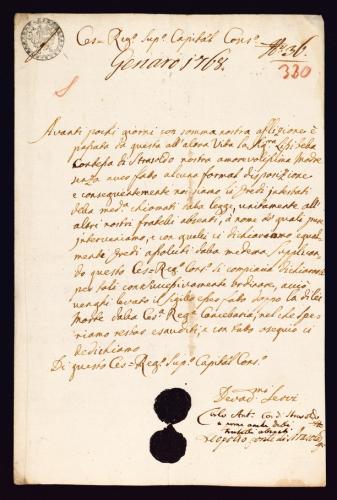 Ces.a Reg.a Sup.a Capital Cons.a
Genaro 1768.
N.o 36.
330
Avanti pochi giorni con somma nostra afflizione è
passata da questa all'altra Vita la
Contessa di Strasoldo nostra amorevolissima Madre
senza aver fatto alcuna formal disposizione
e conseguentemente noi siamo li Eredi
dalla med.a chiamati dalla legge, unitamente all'
altri nostri fratelli absenti, à nome de quali pure
interveniamo, e con questa ci dichiariamo equal-
mente Eredi
do questo Ces.o Reg.o Cons.o si compiacia dichiararci
per tali e ordinare, acciò
venghi levato il sigillo doppo la di Lei
Morte dalla Ces.a Reg.a Cancellaria, nel che spe-
riamo restar esauditi, e con tutto ossequio ci
dedichiamo
Di questo Ces.o Reg.o Sup.o Capital Cons.o
mi
Servi
Carlo Ant. Co. di Strasoldo
a nome anche delli
fratelli absenti
Leopoldo Conte di Strasoldo